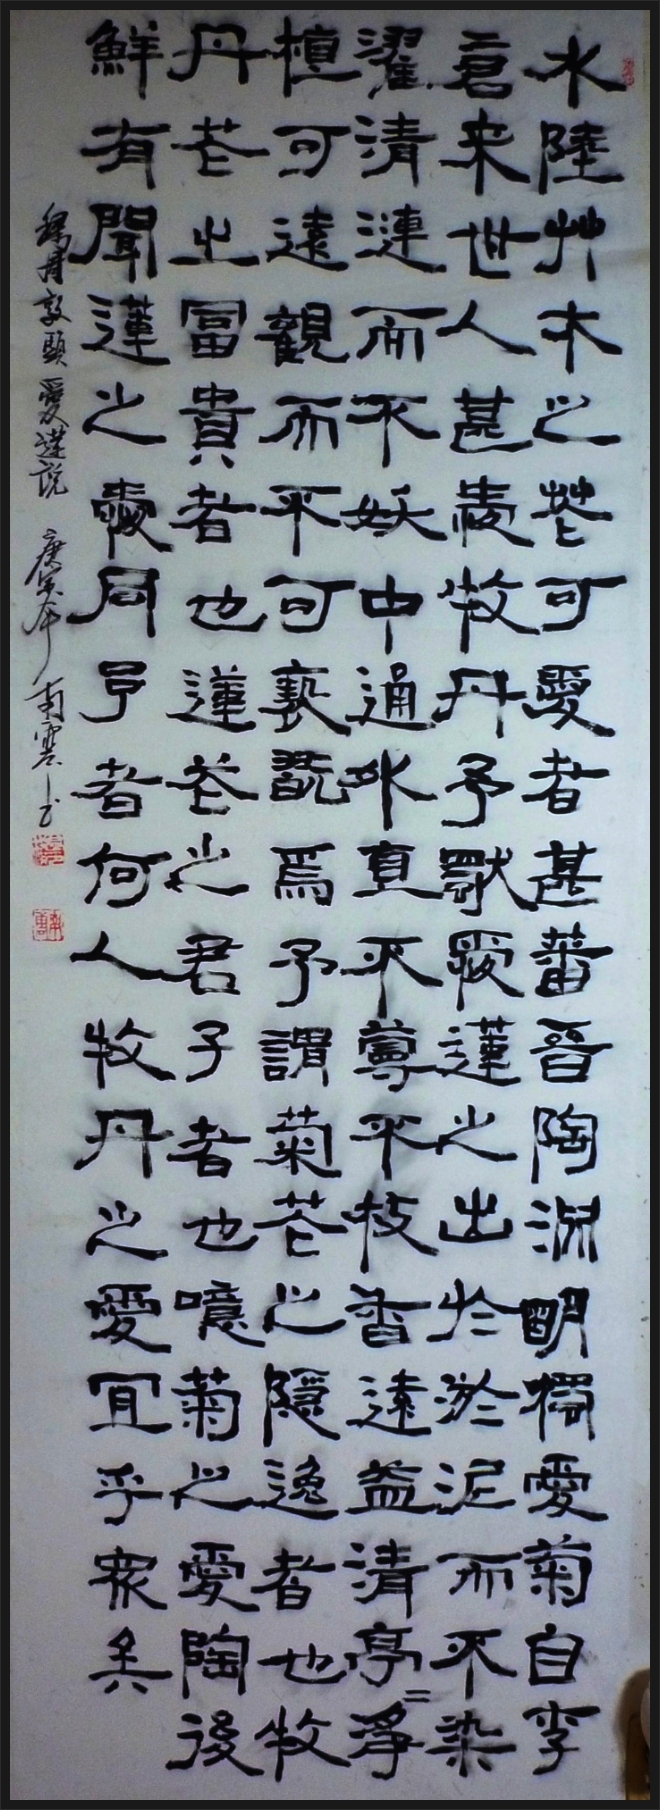 水陸艸木之花可愛者甚蕃晉陶渊明獨愛菊自李
唐来世人甚愛牧丹予獨愛蓮之出於淤泥而不染
濯清漣而不妖中通外直不蔓不枝香遠益清亭〻淨
植可遠觀而不可褻翫焉予謂菊花之隱逸者也牧
丹花之富貴者也蓮花之君子者也噫菊之愛陶後
鮮有聞蓮之愛同予者何人牧丹之愛宜乎衆矣
周敦頤愛蓮説 庚寅年 南